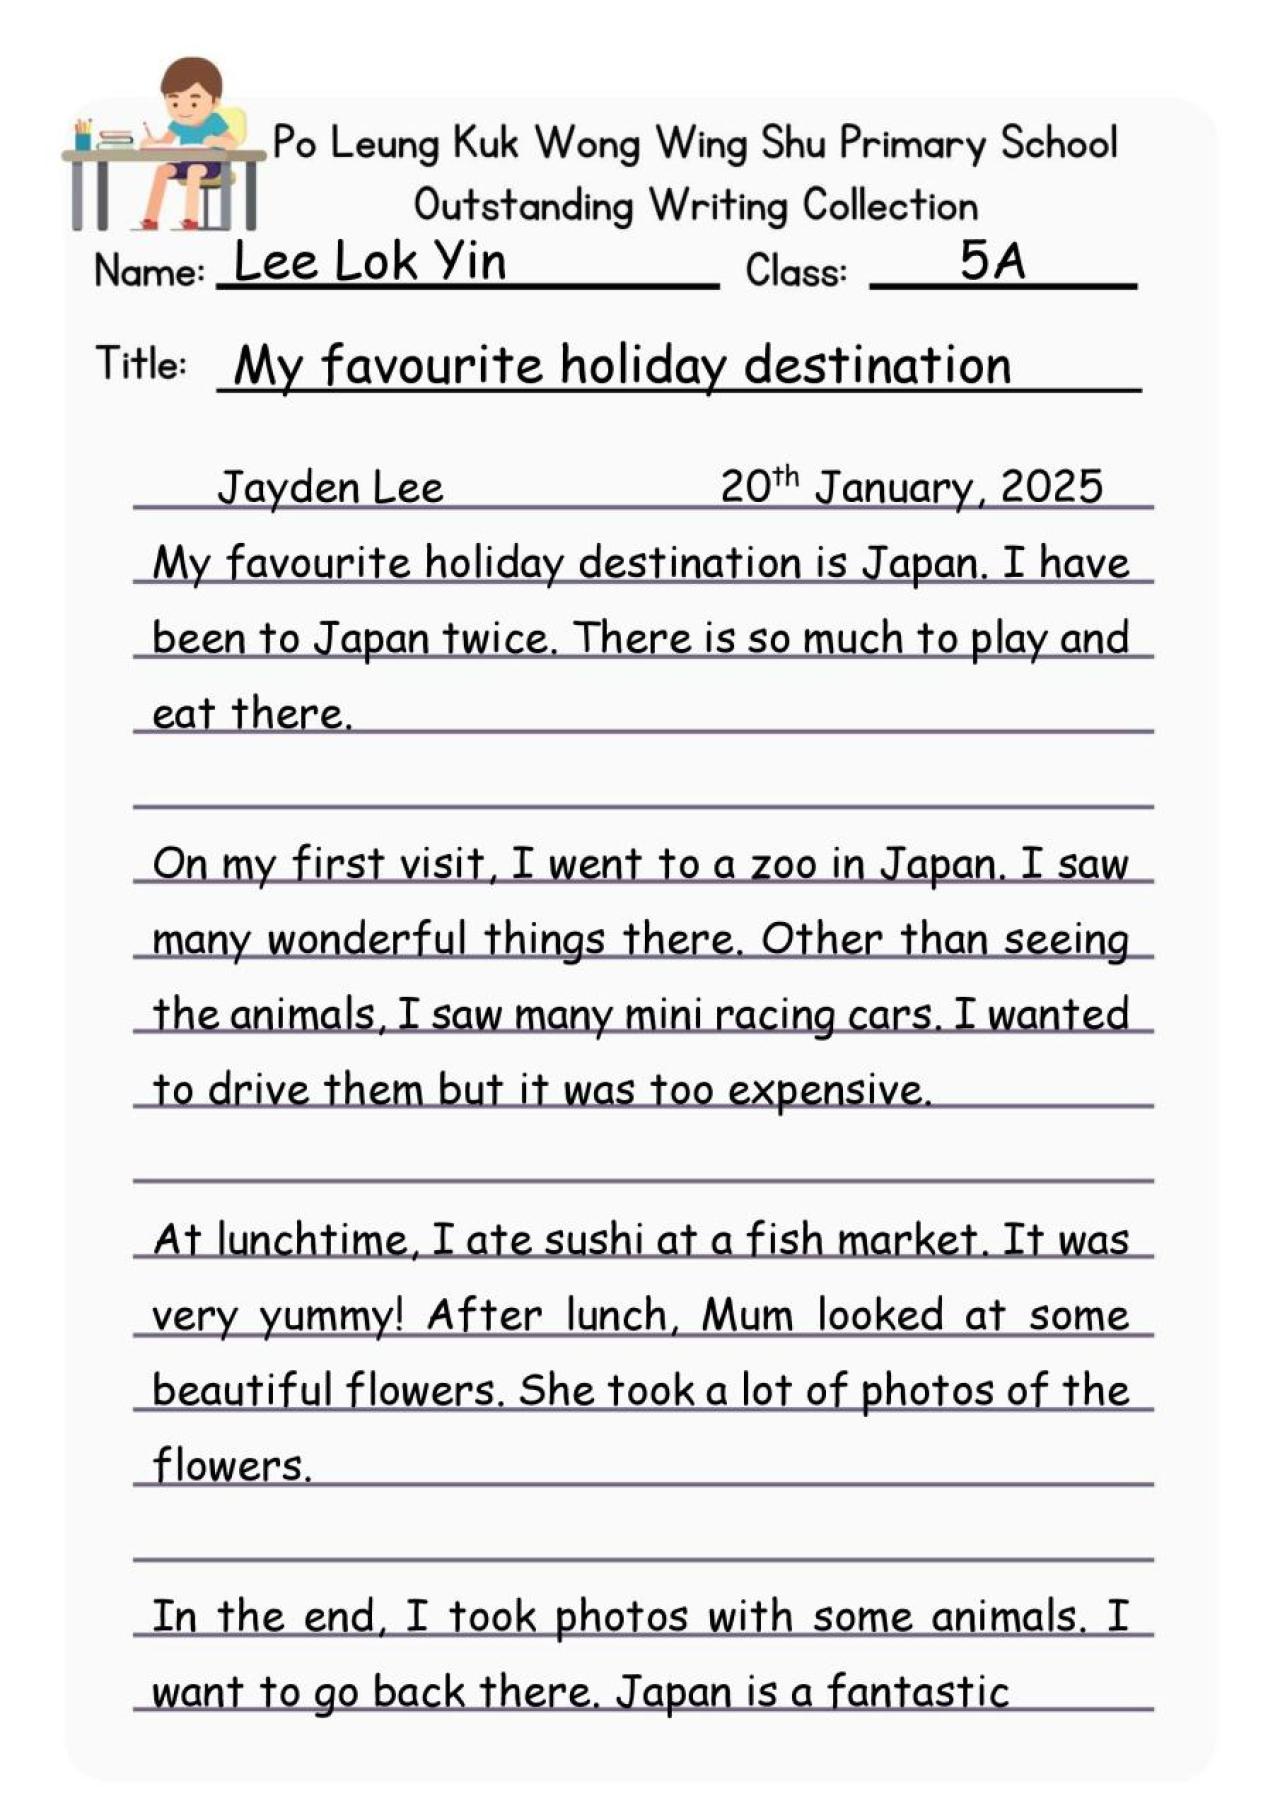 Po Leung Kuk Wong Wing Shu Primary School
Outstanding Writing Collection
Name: Lee Lok Yin Class: 5A
Title: My favourite holiday destination
Jayden Lee 20th January, 2025
My favourite holiday destination is Japan. I have
been to Japan twice. There is so much to play and
eat there.
On my first visit, I went to a zoo in Japan. I saw
many wonderful things there. Other than seeing
the animals, I saw many mini racing cars. I wanted
to drive them but it was too expensive.
At lunchtime, I ate sushi at a fish market. It was
very yummy! After lunch, Mum looked at some
beautiful flowers. She took a lot of photos of the
flowers.
In the end, I took photos with some animals. I
want to go back there. Japan is a fantastic